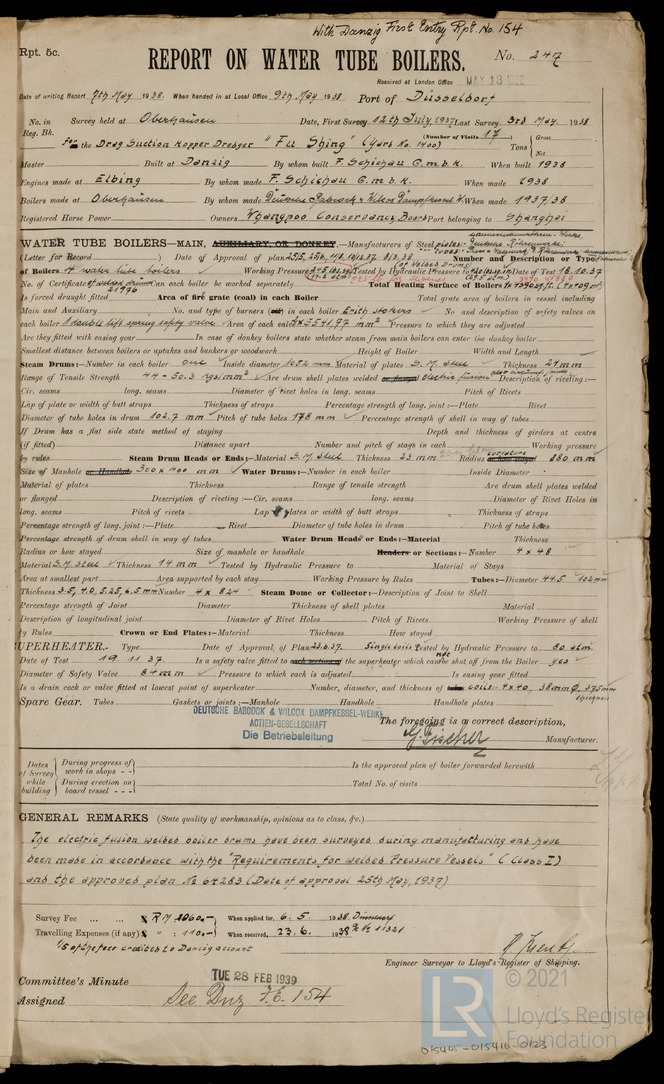 With Danzig First Entry Rpt. No. 154
Rpt. 5c.
REPORT ON WATER TUBE BOILERS.
No. 247
Received at London Office MAY 13 1938
Date of writing Report 7th May 1938. When handed in at Local Office 9th May 1938 Port of Düsseldorf
No. in Survey held at Oberhausen Date, First Survey 12th July, 1937 Last Survey 3rd May. 1938
Reg. Bk. (Number of Visits 17) Gross
for the Drag Suction Hopper Dredger "Fu Shing" (Yard No. 1400) Tons
Net
Master Built at Danzig By whom built F. Schichau G.m.b.H. When built 1938
Engines made at Elbing By whom made F. Schichau G.m.b.H. When made 1938
Boilers made at Oberhausen By whom made Deutsche Babcock & Wilcox Dampfkessel W. When made 1937/38
Registered Horse Power Owners Whangpoo Conservancy Board Port belonging to Shanghai
WATER TUBE BOILERS—MAIN, AUXILIARY, OR DONKEY.—Manufacturers of Steel plates:
(Letter for Record ) Date of Approval of plan Number and Description or Type
of Boilers 4 water tube boilers Working Pressure Tested by Hydraulic Pressure to Date of Test 18.10.37
No. of Certificate of welded drums Can each boiler be worked separately Total Heating Surface of Boilers
Is forced draught fitted Area of fire grate (coal) in each Boiler Total grate area of boilers in vessel including
Main and Auxiliary No. and type of burners (oil) in each boiler Erith stokers No. and description of safety valves on
each boiler 1 double lift spring safety valve Area of each valve 2x3541,77 mm² Pressure to which they are adjusted
Are they fitted with easing gear In case of donkey boilers state whether steam from main boilers can enter the donkey boiler
Smallest distance between boilers or uptakes and bunkers or woodwork Height of Boiler Width and Length
Steam Drums:—Number in each boiler one Inside diameter 1052 mm Material of plates S.M. Steel Thickness 24 mm
Range of Tensile Strength 44 - 50.3 kgs/mm² Are drum shell plates welded or flanged electric fusion Description of riveting:—
Cir. seams long. seams Diameter of rivet holes in long. seams Pitch of Rivets
Lap of plate or width of butt straps Thickness of straps Percentage strength of long. joint:—Plate Rivet
Diameter of tube holes in drum 102.7 mm Pitch of tube holes 178 mm Percentage strength of shell in way of tubes
If Drum has a flat side state method of staying Depth and thickness of girders at centre
(if fitted) Distance apart Number and pitch of stays in each Working pressure
by rules Steam Drum Heads or Ends:—Material S.M. Steel Thickness 23 mm Radius curvature 880 mm
Size of Manhole or Handhole 300 x 400 mm Water Drums:—Number in each boiler Inside Diameter
Material of plates Thickness Range of tensile strength Are drum shell plates welded
or flanged Description of riveting:—Cir. seams long. seams Diameter of Rivet Holes in
long. seams Pitch of rivets Lap of plates or width of butt straps Thickness of straps
Percentage strength of long. joint:—Plate Rivet Diameter of tube holes in drum Pitch of tube holes
Percentage strength of drum shell in way of tubes Water Drum Heads or Ends:—Material Thickness
Radius or how stayed Size of manhole or handhole Headers or Sections:—Number 4 x 48
Material S.M. Steel Thickness 14 mm Tested by Hydraulic Pressure to Material of Stays
Area at smallest part Area supported by each stay Working Pressure by Rules Tubes:—Diameter 44.5 102mm
Thickness 3.5, 4.0, 5.25, 6.5 mm Number 4 x 824 Steam Dome or Collector:—Description of Joint to Shell
Percentage strength of Joint Diameter Thickness of shell plates Material
Description of longitudinal joint Diameter of Rivet Holes Pitch of Rivets Working Pressure of shell
by Rules Crown or End Plates:—Material Thickness How stayed
SUPERHEATER. Type Date of Approval of Plan 23.6.37. Single coils Tested by Hydraulic Pressure to 80 atm
Date of Test 19.11.37. Is a safety valve fitted to each section of the superheater which can not be shut off from the Boiler yes
Diameter of Safety Valve 84 mm Pressure to which each is adjusted Is easing gear fitted
Is a drain cock or valve fitted at lowest point of superheater Number, diameter, and thickness of tubes coils: 4x40, 38mm Ø, 3.75mm thickness
Spare Gear. Tubes Gaskets or joints:—Manhole Handhole Handhole plates
DEUTSCHE BABCOCK & WILCOX DAMPFKESSEL-WERKE
ACTIEN-GESELLSCHAFT
Die Betriebsleitung
The foregoing is a correct description,
Fischer Manufacturer.
Dates of Survey while building
During progress of work in shops - -
During erection on board vessel - - -
Is the approved plan of boiler forwarded herewith
Total No. of visits
GENERAL REMARKS (State quality of workmanship, opinions as to class, &c.)
The electric fusion welded boiler drums have been surveyed during manufacturing and have
been made in accordance with the "Requirements for Welded Pressure Vessels" (Class I)
and the approved plan No 64283 (Date of approval 25th May, 1937)
Survey Fee ... ... RM 1060:- When applied for, 6. 5. 1938. Düsseldorf
Travelling Expenses (if any) " : 110:- When received, 23.6. 1938
1/5 of the fee credited to Danzig account
Engineer Surveyor to Lloyd's Register of Shipping.
Committee's Minute TUE 28 FEB 1939
Assigned See Dnz F.E. 154
LR
© 2021
Lloyd's Register
Foundation
015405-015416-0123